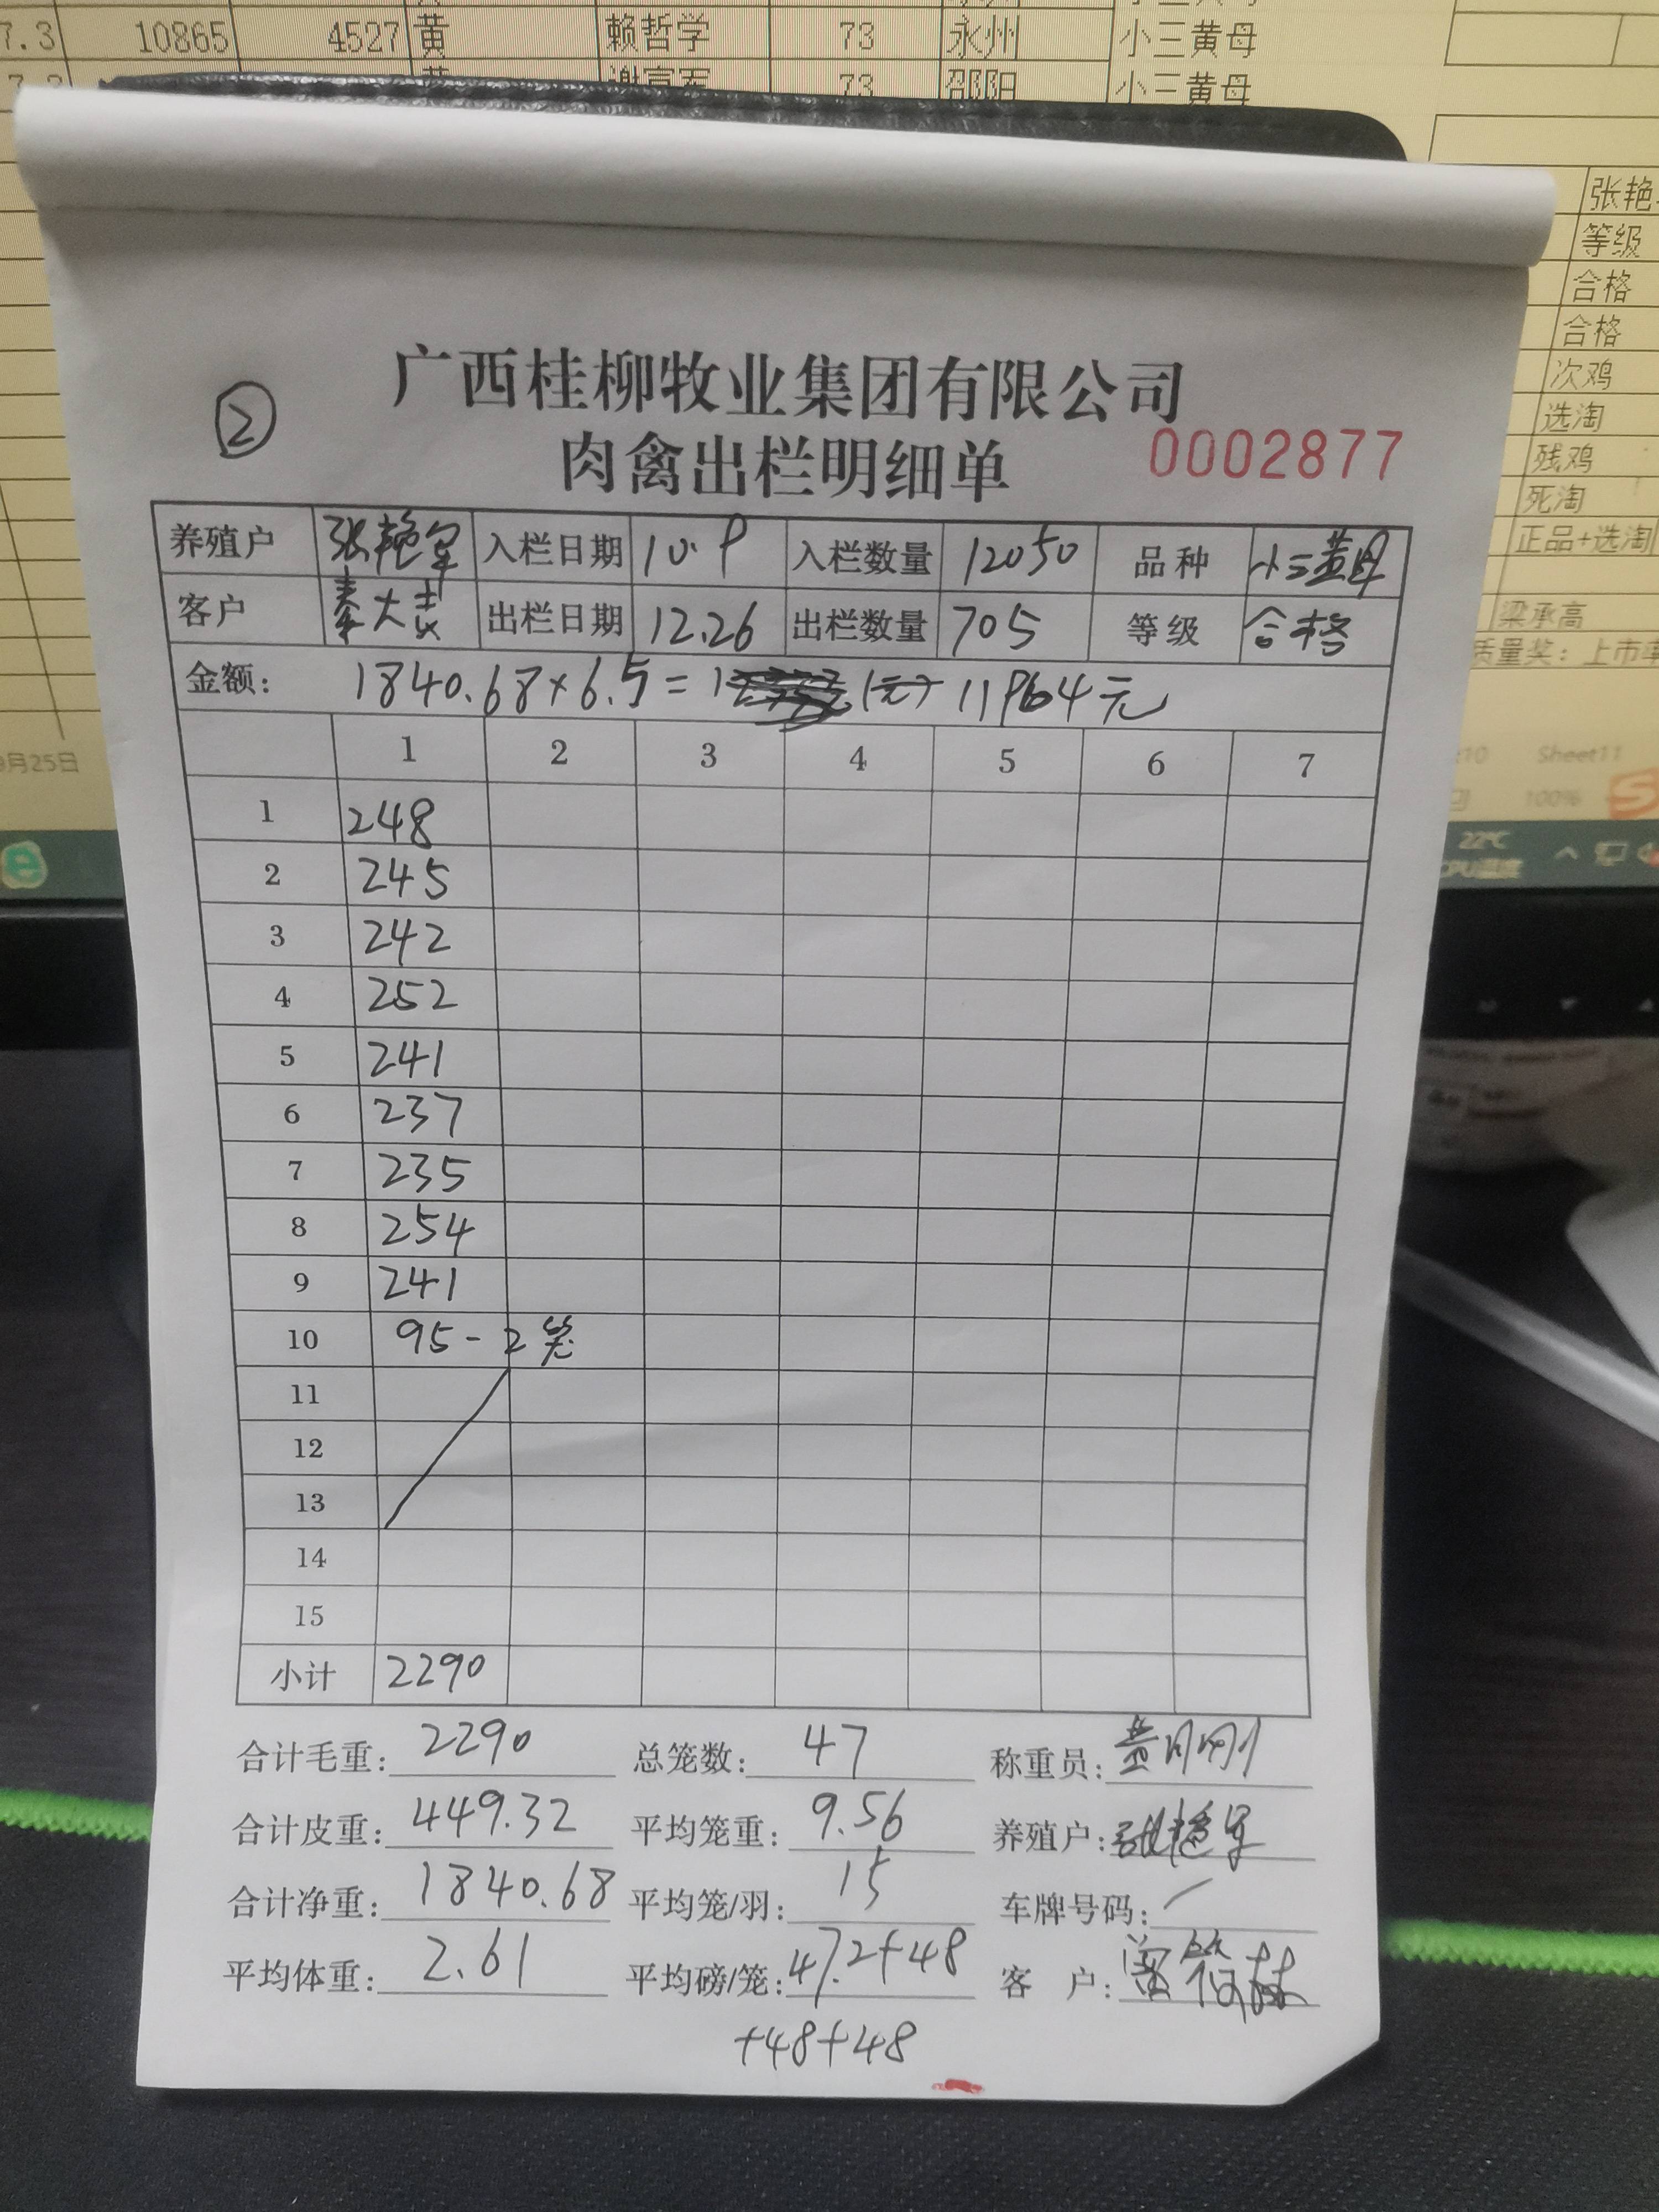 7.3 10865 4527 黄 赖哲学 73 永州 小三黄母
73 邵阳 小三黄母
张艳
等级
合格
合格
次鸡
选淘
残鸡
死淘
正品+选淘
梁承高
质量奖：上市率
9月25日
Sheet11
100%
22℃
CPU温度
②
广西桂柳牧业集团有限公司
肉禽出栏明细单 0002877
养殖户 张艳军 入栏日期 10.9 入栏数量 12050 品种 小三黄母
客户 秦大志 出栏日期 12.26 出栏数量 705 等级 合格
金额： 1840.68×6.5= (元) 11964元
1 2 3 4 5 6 7
1 248
2 245
3 242
4 252
5 241
6 237
7 235
8 254
9 241
10 95-2笼
11
12
13
14
15
小计 2290
合计毛重：2290 总笼数：47 称重员：黄刚刚
合计皮重：449.32 平均笼重：9.56 养殖户：张艳军
合计净重：1840.68 平均笼/羽：15 车牌号码：/
平均体重：2.61 平均磅/笼：47.2+48 客 户：
+48+48